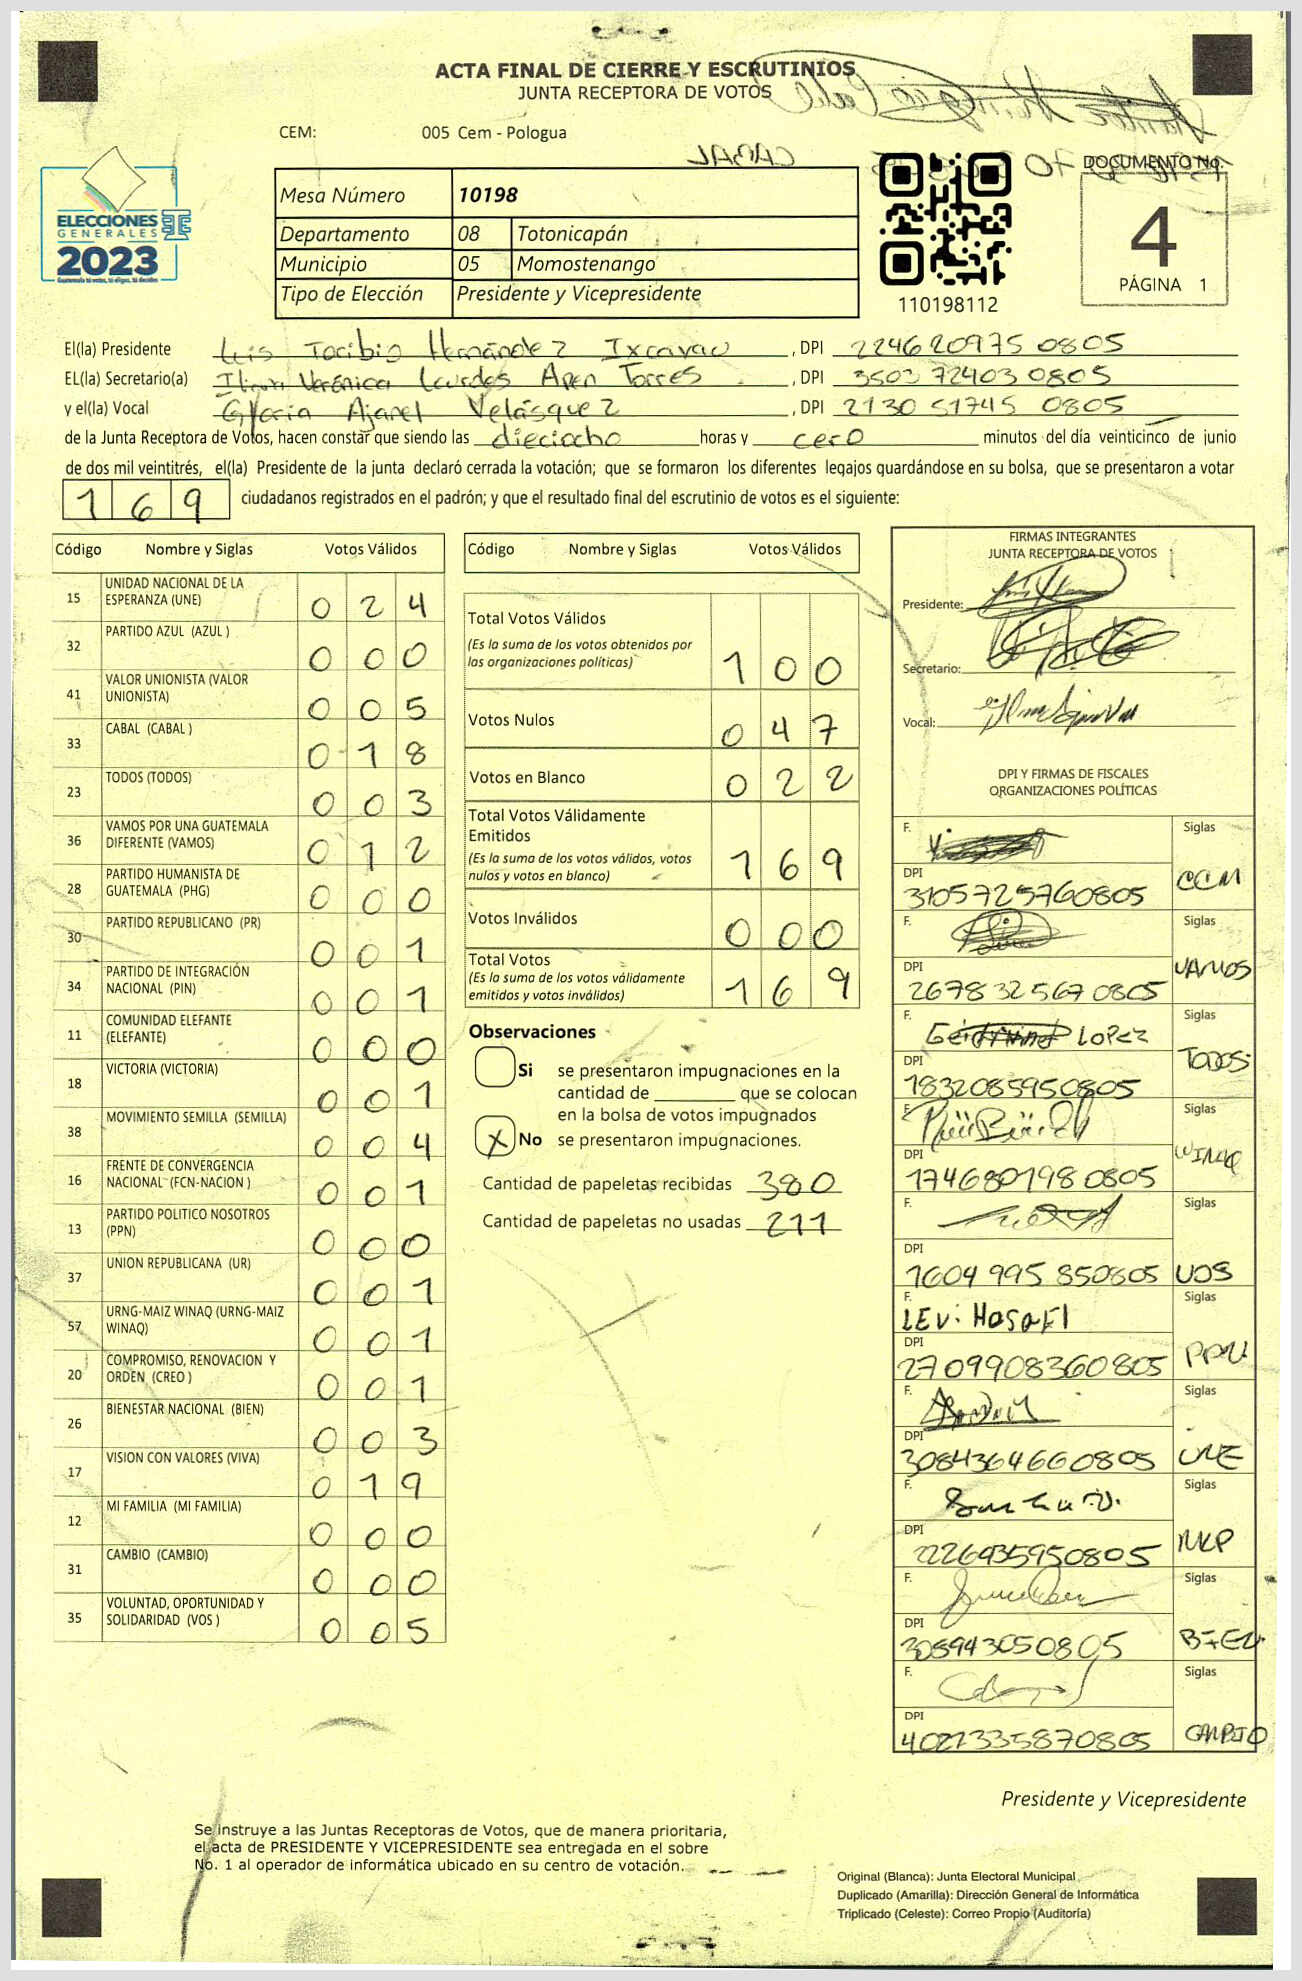 ACTA FINAL DE CIERRE Y ESCRUTINIOS
JUNTA RECEPTORA DE VOTOS
CEM: 005 Cem - Pologua
CABAL
DOCUMENTO No.
4
PÁGINA 1
ELECCIONES
GENERALES
2023
Mesa Número 10198
Departamento 08 Totonicapán
Municipio 05 Momostenango
Tipo de Elección Presidente y Vicepresidente
110198112
El(la) Presidente Luis Toribio Hernández Ixcayau, DPI 224620975 0805
EL(la) Secretario(a) Verónica Lourdes Apen Torres, DPI 3503 72403 0805
y el(la) Vocal Gloria Ajanel Velásquez, DPI 2130 51745 0805
de la Junta Receptora de Votos, hacen constar que siendo las dieciocho horas y cero minutos del día veinticinco de junio
de dos mil veintitrés, el(la) Presidente de la junta declaró cerrada la votación; que se formaron los diferentes legajos guardándose en su bolsa, que se presentaron a votar
169 ciudadanos registrados en el padrón; y que el resultado final del escrutinio de votos es el siguiente:
Código Nombre y Siglas Votos Válidos
15 UNIDAD NACIONAL DE LA ESPERANZA (UNE) 0 2 4
32 PARTIDO AZUL (AZUL ) 0 0 0
41 VALOR UNIONISTA (VALOR UNIONISTA) 0 0 5
33 CABAL (CABAL ) 0 1 8
23 TODOS (TODOS) 0 0 3
36 VAMOS POR UNA GUATEMALA DIFERENTE (VAMOS) 0 1 2
28 PARTIDO HUMANISTA DE GUATEMALA (PHG) 0 0 0
30 PARTIDO REPUBLICANO (PR) 0 0 1
34 PARTIDO DE INTEGRACIÓN NACIONAL (PIN) 0 0 1
11 COMUNIDAD ELEFANTE (ELEFANTE) 0 0 0
18 VICTORIA (VICTORIA) 0 0 1
38 MOVIMIENTO SEMILLA (SEMILLA) 0 0 4
16 FRENTE DE CONVERGENCIA NACIONAL (FCN-NACION ) 0 0 1
13 PARTIDO POLITICO NOSOTROS (PPN) 0 0 0
37 UNION REPUBLICANA (UR) 0 0 1
57 URNG-MAIZ WINAQ (URNG-MAIZ WINAQ) 0 0 1
20 COMPROMISO, RENOVACION Y ORDEN (CREO ) 0 0 1
26 BIENESTAR NACIONAL (BIEN) 0 0 3
17 VISION CON VALORES (VIVA) 0 1 9
12 MI FAMILIA (MI FAMILIA) 0 0 0
31 CAMBIO (CAMBIO) 0 0 0
35 VOLUNTAD, OPORTUNIDAD Y SOLIDARIDAD (VOS ) 0 0 5
Código Nombre y Siglas Votos Válidos
Total Votos Válidos
(Es la suma de los votos obtenidos por las organizaciones políticas) 1 0 0
Votos Nulos 0 4 7
Votos en Blanco 0 2 2
Total Votos Válidamente Emitidos
(Es la suma de los votos válidos, votos nulos y votos en blanco) 1 6 9
Votos Inválidos 0 0 0
Total Votos
(Es la suma de los votos válidamente emitidos y votos inválidos) 1 6 9
Observaciones
Si se presentaron impugnaciones en la
cantidad de ________ que se colocan
en la bolsa de votos impugnados
X No se presentaron impugnaciones.
Cantidad de papeletas recibidas 380
Cantidad de papeletas no usadas 211
FIRMAS INTEGRANTES
JUNTA RECEPTORA DE VOTOS
Presidente:
Secretario:
Vocal:
DPI Y FIRMAS DE FISCALES
ORGANIZACIONES POLÍTICAS
F. Siglas
DPI 3105725760805 CCM
F. Siglas
DPI 2678325670805 VAMOS
F. LOPEZ Siglas
DPI 1832085950805 TODOS
F. Siglas
DPI 1746801980805 WINAQ
F. Siglas
DPI 1604 995 850805 VOS
F. LEVi HosaEl Siglas
DPI 2709908360805 PPN
F. Siglas
DPI 3084364660805 UNE
F. Siglas
DPI 2226935950805 MLP
F. Siglas
DPI 308943050805 BIEN
F. Siglas
DPI 4021335870805 CAMBIO
Presidente y Vicepresidente
Se instruye a las Juntas Receptoras de Votos, que de manera prioritaria,
el acta de PRESIDENTE Y VICEPRESIDENTE sea entregada en el sobre
No. 1 al operador de informática ubicado en su centro de votación.
Original (Blanca): Junta Electoral Municipal
Duplicado (Amarilla): Dirección General de Informática
Triplicado (Celeste): Correo Propio (Auditoría)